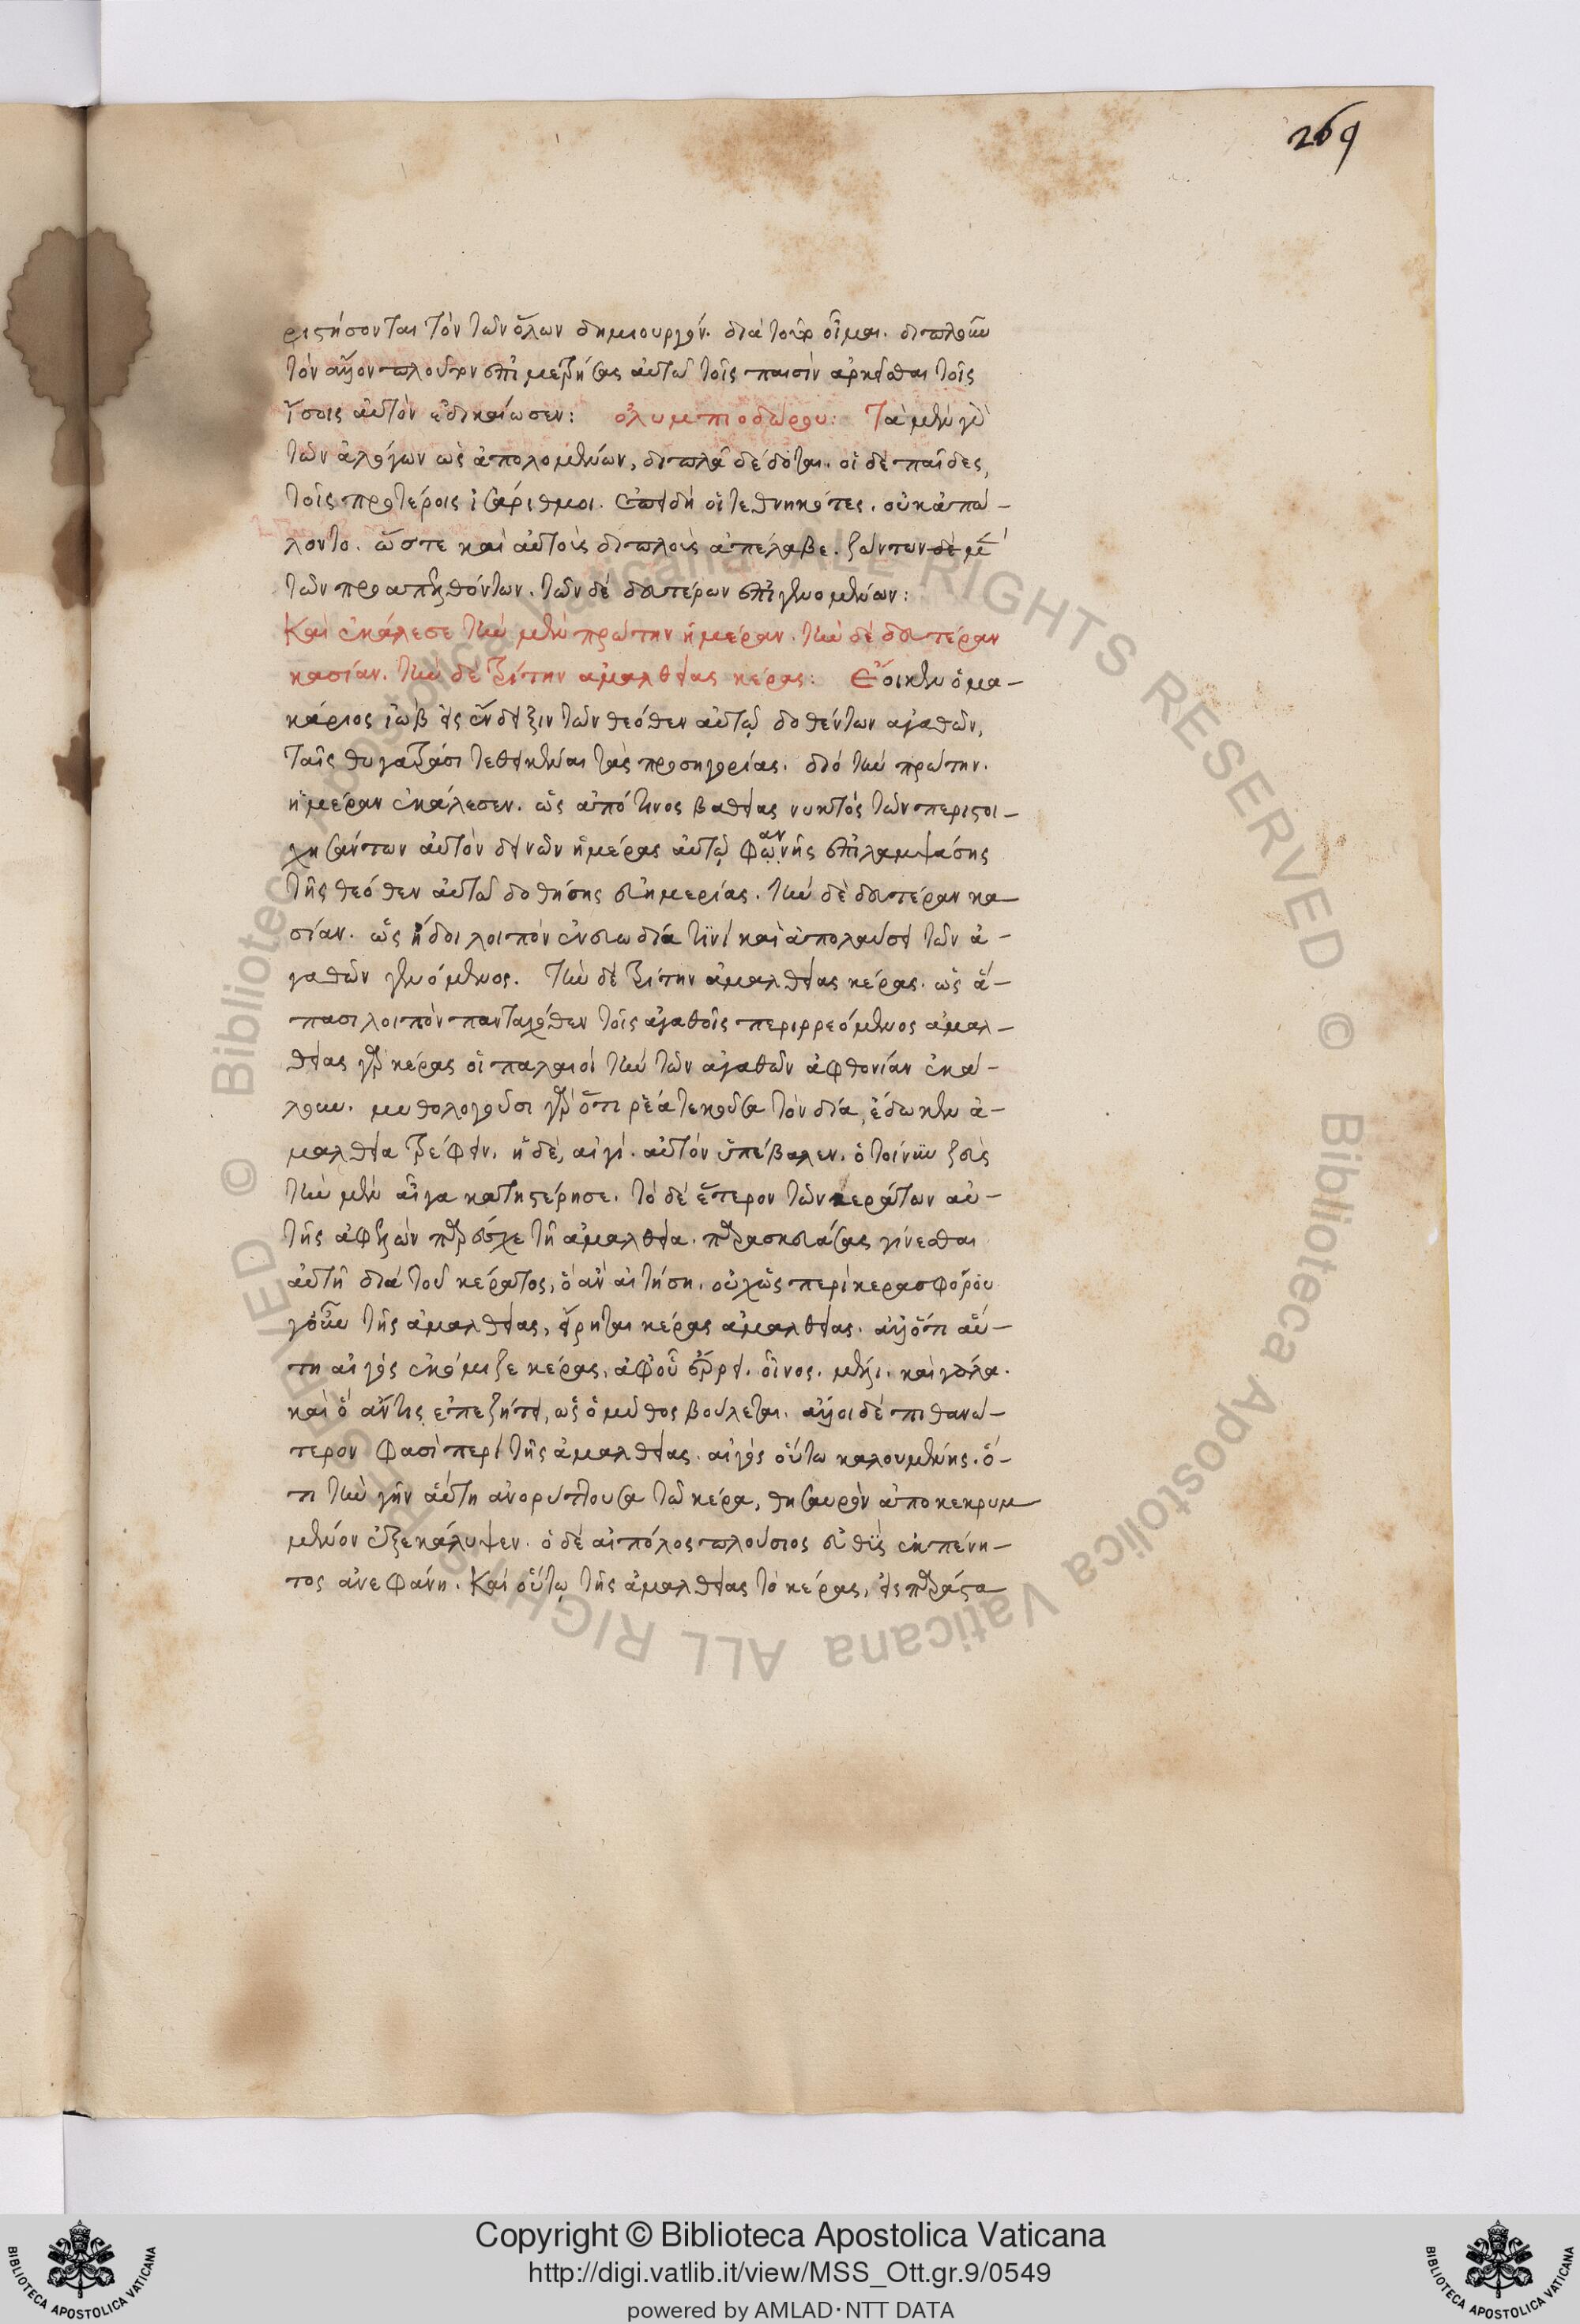 269
ριστήσονται τὸν τῶν ὅλων δημιουργόν. διὰ τοῦτο οἶμαι. διπλοῦν
τὸν ἄλλον πλοῦτον ἐπιμετρήσας αὐτῶ τοῖς παισὶν ἀρκεῖσθαι τοῖς
ἴσοις αὐτὸν ἐδικαίωσεν: ὀλυμπιοδώρου: Τὰ μὲν γὰρ
τῶν ἀλόγων ὡς ἀπολομένων, διπλᾶ δέδοται. οἱ δὲ παῖδες,
τοῖς προτέροις ἰσάριθμοι. ἐπειδὴ οἱ τεθνηκότες. οὐκ ἀπώ-
λοντο. ὥστε καὶ αὐτοὺς διπλοὺς ἀπέλαβε. ζώντων δὲ μετὰ
τῶν προαπελθόντων. τῶν δὲ δευτέρων ἐπιγενομένων:
Καὶ ἐκάλεσε τὴν μὲν πρώτην ἡμέραν. τὴν δὲ δευτέραν
κασίαν. τὴν δὲ τρίτην ἀμαλθείας κέρας: Ἔοικεν ὁ μα-
κάριος ἰὼβ εἰς ἔνδειξιν τῶν θεόθεν αὐτῷ δοθέντων ἀγαθῶν,
ταῖς θυγατράσι τεθεικέναι τὰς προσηγορίας. διὸ τὴν πρώτην.
ἡμέραν ἐκάλεσεν. ὡς ἀπό τινος βαθείας νυκτὸς τῶν περιστοι-
χησάντων αὐτὸν δεινῶν ἡμέρας αὐτῷ φωνῆς ἐπιλαμψάσης
αν
τῆς θεόθεν αὐτῶ δοθήσης εὐημερίας. τὴν δὲ δευτέραν κα-
σίαν. ὡς ἤδοι λοιπὸν ἐν εὐωδία τινὶ καὶ ἀπολαύσει τῶν ἀ-
γαθῶν γενόμενος. Τὴν δὲ τρίτην ἀμαλθείας κέρας. ὡς ἅ-
πασι λοιπὸν πανταχόθεν τοῖς ἀγαθοῖς περιρρεόμενος ἀμαλ-
θείας γὰρ κέρας οἱ παλαιοὶ τὴν τῶν ἀγαθῶν ἀφθονίαν ἐκά-
λουν. μυθολογοῦσι γὰρ ὅτι ῥέα τεκοῦσα τὸν δία, ἔδωκεν ἀ-
μαλθεία τρέφειν. ἡ δὲ, αἰγὶ. αὐτὸν ὑπέβαλεν. ὁ τοίνυν ζεὺς
τὴν μὲν αἶγα κατηστέρησε. τὸ δὲ ἕτερον τῶν κεράτων αὐ-
τῆς ἀφελὼν παρέσχε τῆ ἀμαλθεία. παρασκευάσας γίνεσθαι
αὐτῆ διὰ τοῦ κέρατος, ὃ ἂν αἰτήση. οὐχ ὡς περὶ κερασφόρου
γοῦν τῆς ἀμαλθείας, εἴρηται κέρας ἀμαλθείας. ἀλλ' ὅτι αὕ-
τη αἰγὸς ἐκόμιζε κέρας, ἀφ' οὗ ἔρρει. οἶνος. μέλι. καὶ γάλα.
καὶ ὃ ἄν τις ἐπεζήτει, ὡς ὁ μῦθος βούλεται. ἄλλοι δὲ πιθανώ-
τερον φασὶ περὶ τῆς ἀμαλθείας. αἰγὸς οὕτω καλουμένης. ὅ-
τι τὴν γῆν αὕτη ἀνορύττουσα τῶ κέρα, θησαυρὸν ἀποκεκρυμ
μένον ἐξεκάλυψεν. ὁ δὲ αἰπόλος πλούσιος εὐθὺς ἐκ πένη-
τος ἀνεφάνη. Καὶ οὕτω τῆς ἀμαλθείας τὸ κέρας, εἰς παράστα
© Biblioteca Apostolica Vaticana ALL RIGHTS RESERVED © Biblioteca Apostolica Vaticana ALL RIGHTS RESERVED
Copyright © Biblioteca Apostolica Vaticana
http://digi.vatlib.it/view/MSS_Ott.gr.9/0549
powered by AMLAD · NTT DATA
BIBLIOTECA APOSTOLICA VATICANA
BIBLIOTECA APOSTOLICA VATICANA